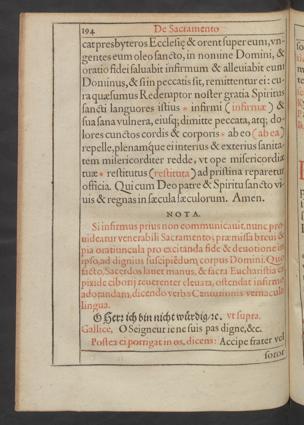 194 De Sacramento
cat presbyteros Ecclesię & orent super eum, vn-
gentes eum oleo sancto, in nomine Domini, &
oratio fidei saluabit infirmum & alleuiabit eum
Dominus, & si in peccatis sit, remittentur ei: cu-
ra quæsumus Redemptor noster gratia Spiritus
sancti languores istius * infirmi (infirmæ) &
sua sana vulnera, eiusq; dimitte peccata, atq; do-
lores cunctos cordis & corporis * ab eo (ab ea)
repelle, plenamque ei interius & exterius sanita-
tem misericorditer redde, vt ope misericordiæ
tuæ * restitutus (restituta) ad pristina reparetur
officia. Qui cum Deo patre & Spiritu sancto vi-
uis & regnas in sæcula sæculorum. Amen.
NOTA.
Si infirmus prius non communicauit, nunc pro-
uideatur venerabili Sacramento; præmissa breui &
pia oratiuncula pro excitanda fide & deuotione
ipso, ad dignius suscipiēdum corpus Domini. Quo
facto, Sacerdos lauet manus, & sacra Eucharistia e
pixide ciborij reuerenter eleuata, ostendat infirmo
adorandam, dicendo verba Centurionis vernacula
lingua.
O Herr ich bin nicht würdig, ꝛc. vt supra.
Gallice, O Seigneur ie ne suis pas digne, &c.
Postea ei porrigat in os, dicens: Accipe frater vel
soror